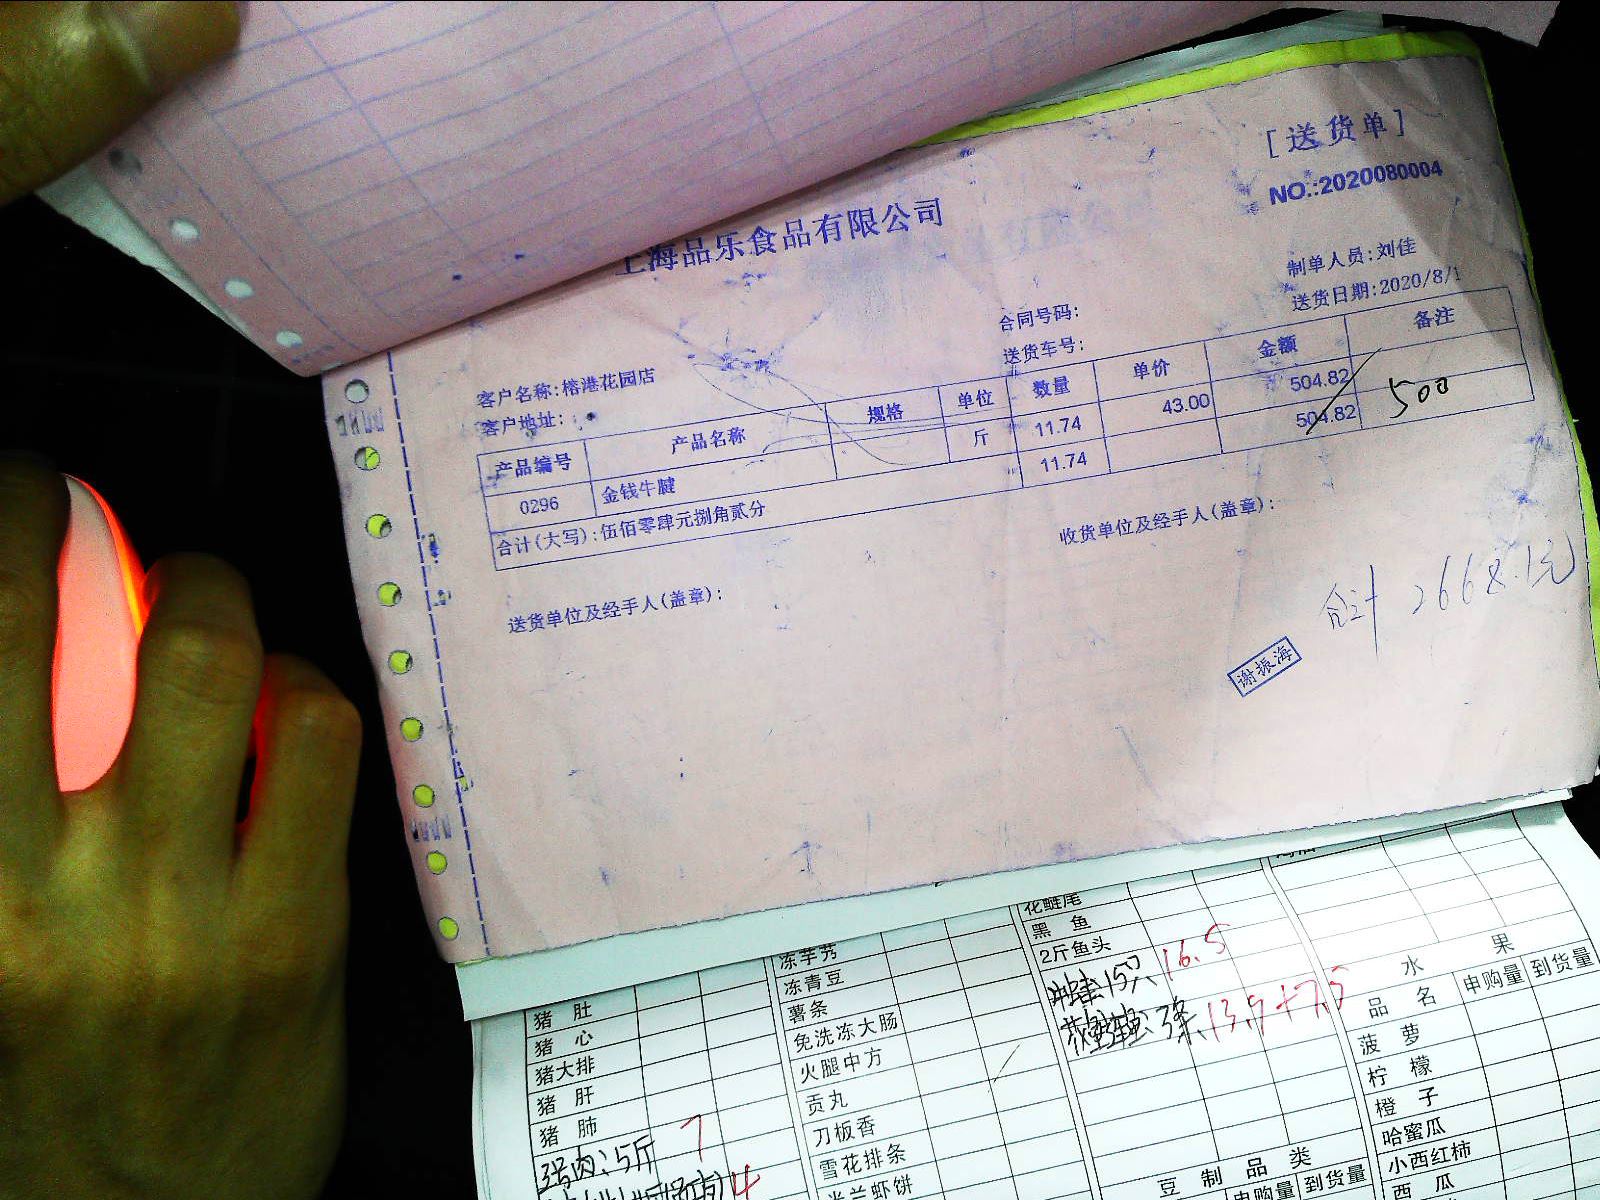 [送货单]
NO.:2020080004
上海品乐食品有限公司
制单人员:刘佳
送货日期:2020/8/1
合同号码:
送货车号:
客户名称:榕港花园店
客户地址:
产品编号 产品名称 规格 单位 数量 单价 金额 备注
0296 金钱牛腱 斤 11.74 43.00 504.82
合计(大写):伍佰零肆元捌角贰分 11.74 504.82 500
送货单位及经手人(盖章):
收货单位及经手人(盖章):
合计 2668.1元
谢振海
猪肚
猪心
猪大排
猪肝
猪肺
3号肉:5斤 7
4
冻芋艿
冻青豆
薯条
免洗冻大肠
火腿中方
贡丸
刀板香
雪花排条
米兰虾饼
花鲢尾
黑鱼
2斤鱼头
15只 16.5
3条 13.9+7.5
豆制品类
申购量 到货量
水果
品名 申购量 到货量
菠萝
柠檬
橙子
哈蜜瓜
小西红柿
西瓜